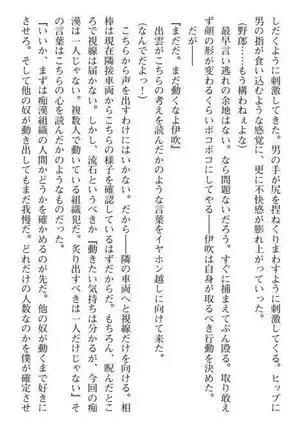 しだくように刺激してきた。男の手が尻を捏ねくりまわすように刺激してくる。ヒップに
男の指が食い込むような感覚に、更に不快感が膨れ上がっていった。
(野郎……もう構わねえよな)
最早言い逃れの余地はない。なら問題ないだろう。すぐに捕まえてぶん殴る。取り敢え
ず顔の形が変わるくらいボコボコにしてやる――伊吹は自身が取るべき行動を決めた。
だが――
『まだだ。まだ動くなよ伊吹』
出雲がこちらの考えを読んだかのような言葉をイヤホン越しに向けて来た。
(なんでだよっ！)
こちらから声を出すわけにはいかない。だから――隣の車両へと視線だけを向ける。相
棒は現在隣接車両からこちらの様子を確認しているはずだからだ。もちろん、睨んだとこ
ろで視線は届かない。しかし、流石というべきか『動きたい気持ちは分かるが、今回の痴
漢は一人じゃない。複数人で動いている組織犯だ。炙り出すべきは一人だけじゃない』そ
の言葉はこちらの心を読んだかのようなものだった。
『いいか、まずは痴漢組織の人間かどうかを確かめるのが先だ。他の奴が動くまで好きに
させろ。そして他の奴が動き出してもまだ我慢だ。どれだけの人数なのかを僕が確定させ